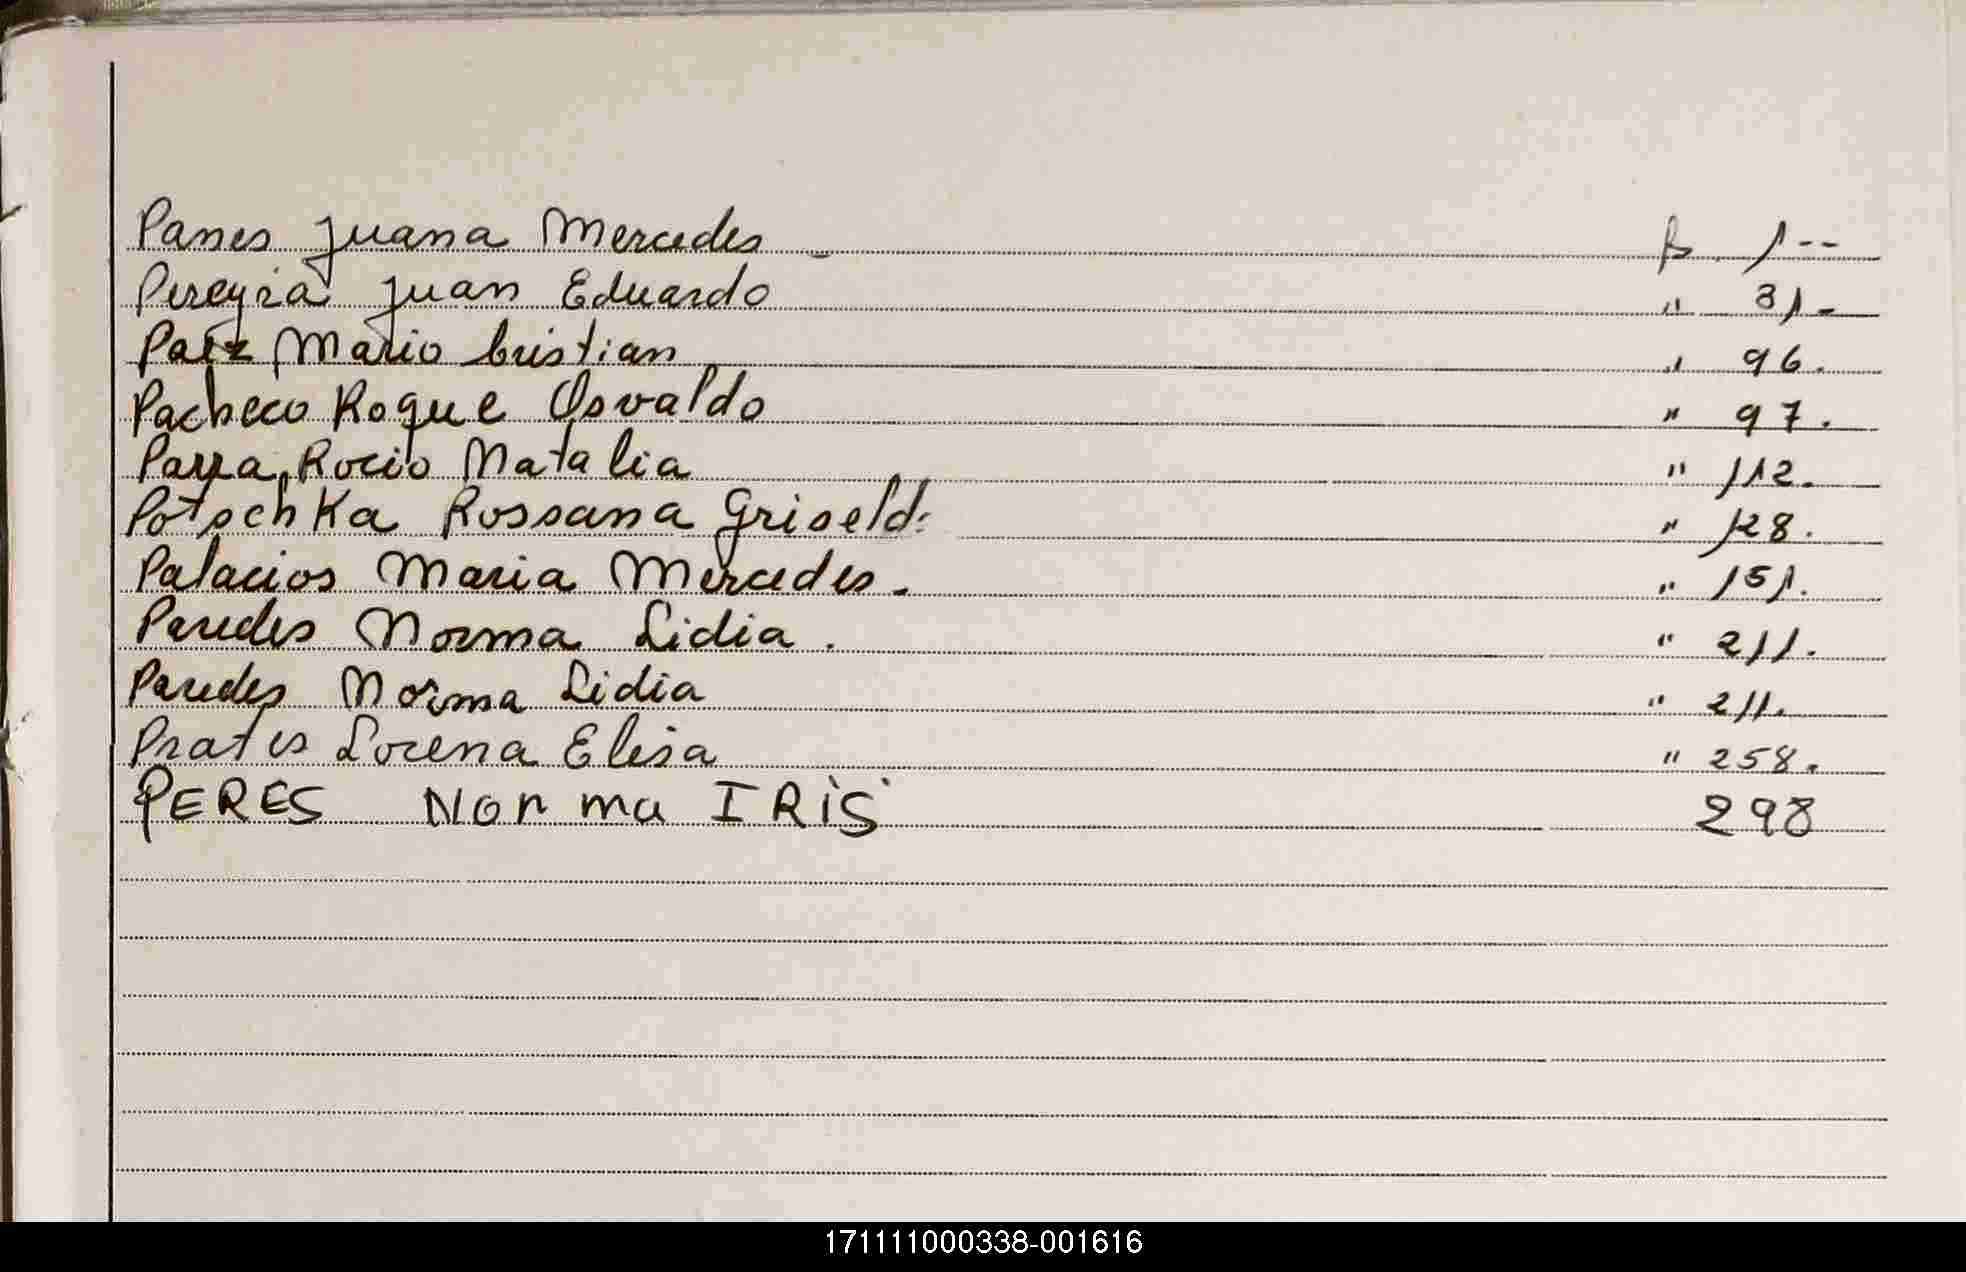 Panes Juana Mercedes - fs 1--
Pereyra Juan Eduardo " 31-
Paez Mario Cristian " 96.
Pacheco Roque Osvaldo " 97.
Parra, Rocio Natalia " 112.
Potschka Rossana Griselda " 128.
Palacios Maria Mercedes. " 151.
Paredes Norma Lidia. " 211.
Paredes Norma Lidia " 211.
Prates Lorena Elisa " 258.
PERES Norma IRIS 298
171111000338-001616